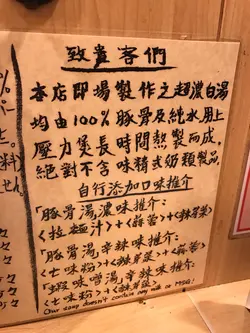 致貴客們
本店即場製作之超濃白湯
均由100%豚骨及純水,用上
壓力煲長時間熬製而成,
絕對不含味精或奶類製品,
自行添加口味推介
「豚骨湯濃味推介:
<拉麵汁>+<蒜蓉>+<辣芽菜>
「豚骨湯辛辣味推介:
<七味粉>+<辣芽菜>+<蒜蓉>
「蝦味噌湯辛辣味推介:
<七味粉>+<辣芽菜>
Our soup doesn't contain any milk or MSG!
%
料)
せん。